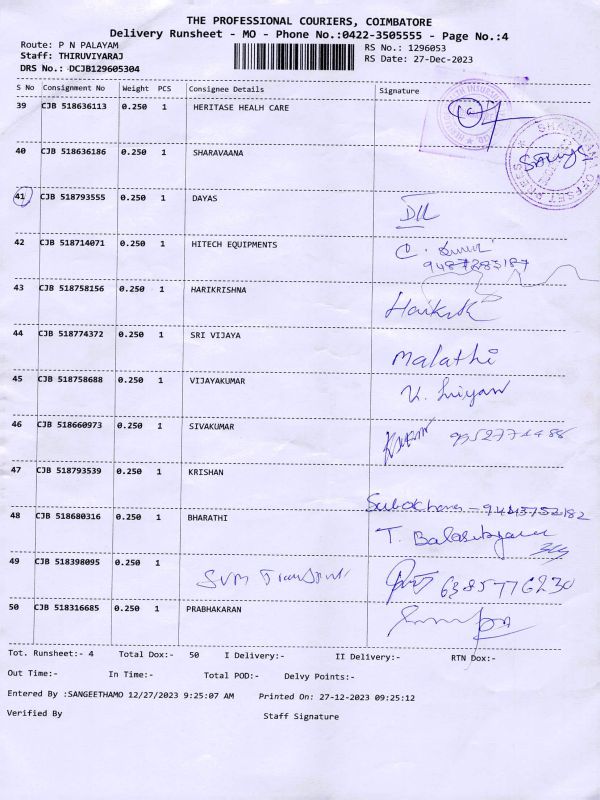 THE PROFESSIONAL COURIERS, COIMBATORE
Delivery Runsheet - MO - Phone No.:0422-3505555 - Page No.:4
Route: P N PALAYAM
RS No.: 1296053
Staff: THIRUVIYARAJ
RS Date: 27-Dec-2023
DRS No.: DCJB129605304
S No Consignment No Weight PCS Consignee Details Signature
39 CJB 518636113 0.250 1 HERITASE HEALH CARE
40 CJB 518636186 0.250 1 SHARAVAANA
SHARAVANA OFFSET
41 CJB 518793555 0.250 1 DAYAS
42 CJB 518714071 0.250 1 HITECH EQUIPMENTS
43 CJB 518758156 0.250 1 HARIKRISHNA
44 CJB 518774372 0.250 1 SRI VIJAYA Malathi
45 CJB 518758688 0.250 1 VIJAYAKUMAR
46 CJB 518660973 0.250 1 SIVAKUMAR
47 CJB 518793539 0.250 1 KRISHAN
48 CJB 518680316 0.250 1 BHARATHI
49 CJB 518398095 0.250 1 SVM Transport 6385776230
50 CJB 518316685 0.250 1 PRABHAKARAN
Tot. Runsheet:- 4 Total Dox:- 50 I Delivery:- II Delivery:- RTN Dox:-
Out Time:- In Time:- Total POD:- Delvy Points:-
Entered By :SANGEETHAMO 12/27/2023 9:25:07 AM Printed On: 27-12-2023 09:25:12
Verified By Staff Signature